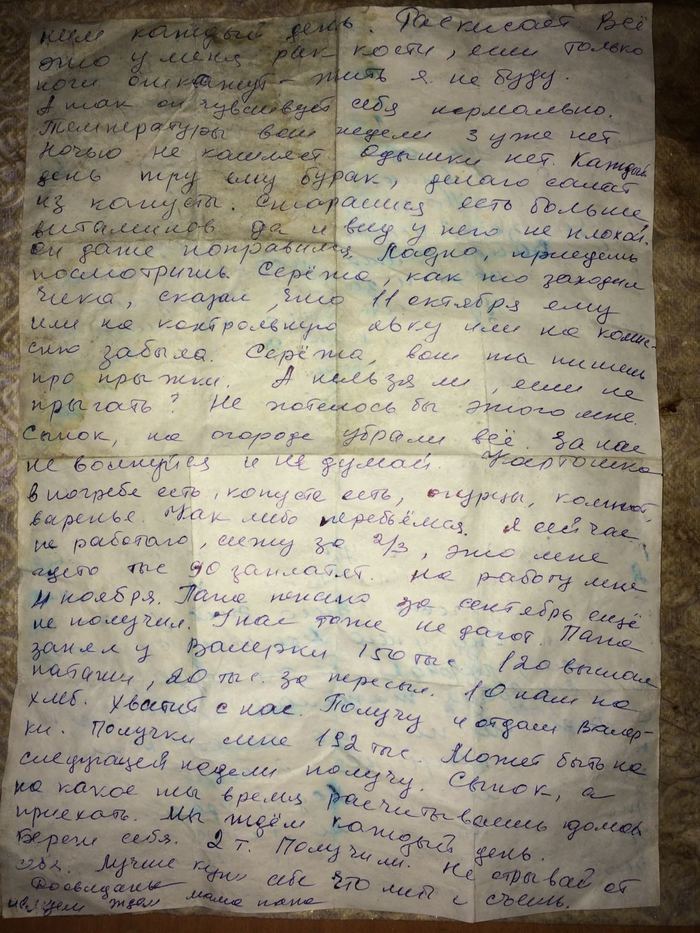 ним каждый день. Раскисает Всё
это у меня рак кости, если только
ноги откажут - жить я не буду.
А так он чувствует себя нормально.
Температуры вот недели 3 уже нет.
Ночью не кашляет. Одышки нет. Каждый
день тру ему бурак, делаю салат
из капусты. Стараемся есть больше
витаминов да и вид у него не плохой.
он даже поправился. Ладно, приедешь
посмотришь. Серёжа, как то заходил
Чика, сказал, что 11 октября ему
или на контрольную явку или на комис-
сию забыла. Серёжа, вот ты пишешь
про прыжки. А нельзя ли, если не
прыгать? Не хотелось бы этого мне.
Сынок, на огороде убрали всё. За нас
не волнуйся и не думай. Картошка
в погребе есть, капуста есть, огурцы, компот,
варенье. Как либо перебьёмся. Я сейчас
не работаю, сижу за 2/3, это мне
где то тыс 90 заплатят. На работу мне
4 ноября. Папа пенсию за сентябрь ещё
не получил. У нас тоже не дают. Папа
занял у Валерки 150 тыс 120 выслал
Наташи, 20 тыс. за пересыл. 10 нам на
хлеб. Хватит с нас. Получу и отдам Валер-
ки. Получки мне 192 тыс. Может быть на
следующей недели получу. Сынок, а
на какое ты время расчитываешь домой
приехать. Мы ждём каждый день.
Береги себя. 2 т. Получили. Не отрывай от
себя. Лучше купи себе что либо и съешь.
Досвидание
целуем ждем мама папа